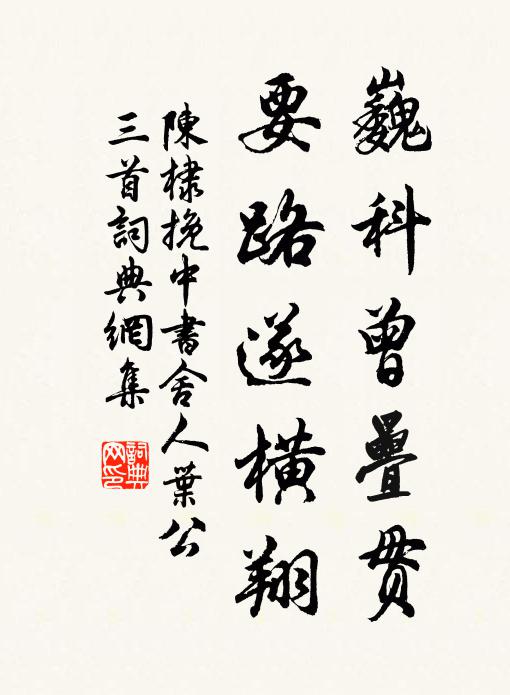 巍科曾疊貫
要路遂橫翔
陳棣挽中書舍人葉公
三首詞典網集
詞典網印